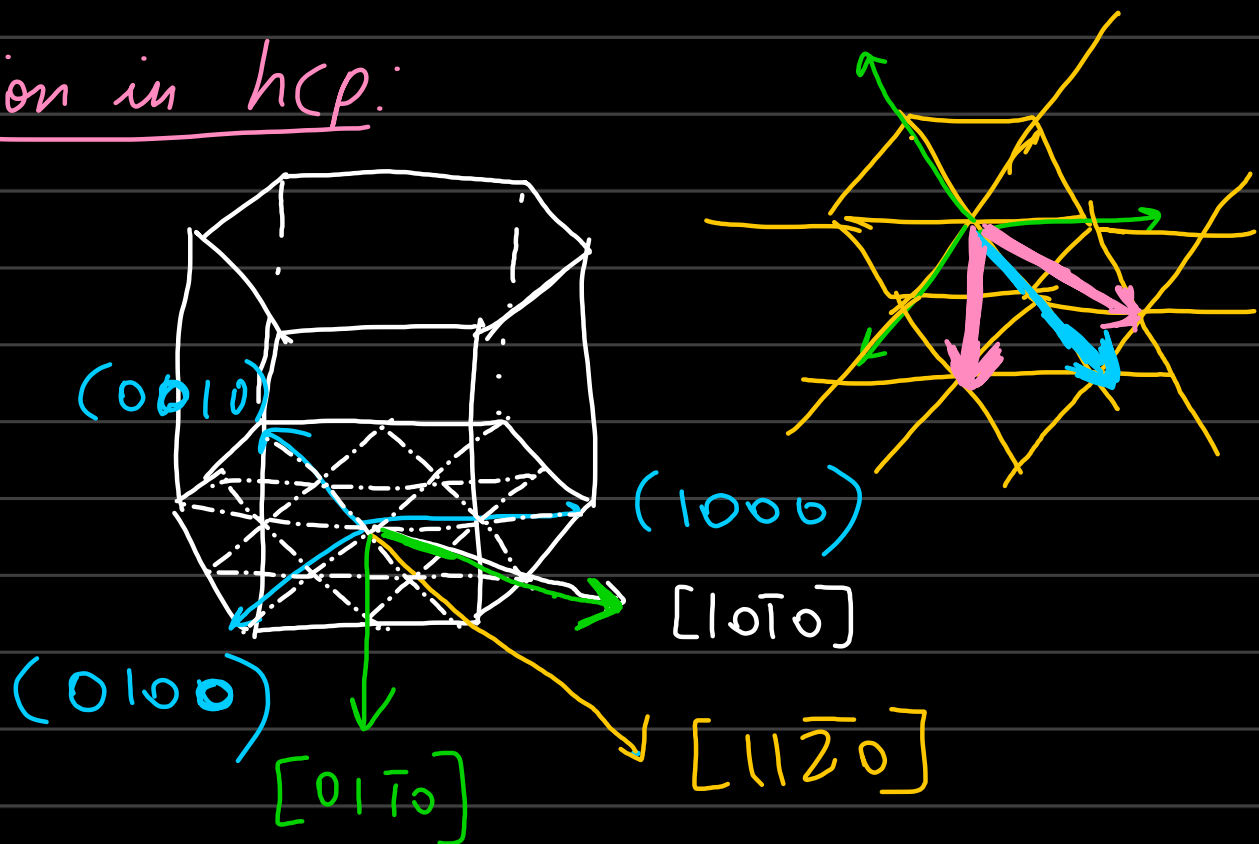 on in hcp:
(0010)
(1000)
[10̅1̅0]
(0100)
[112̅0]
[011̅0]